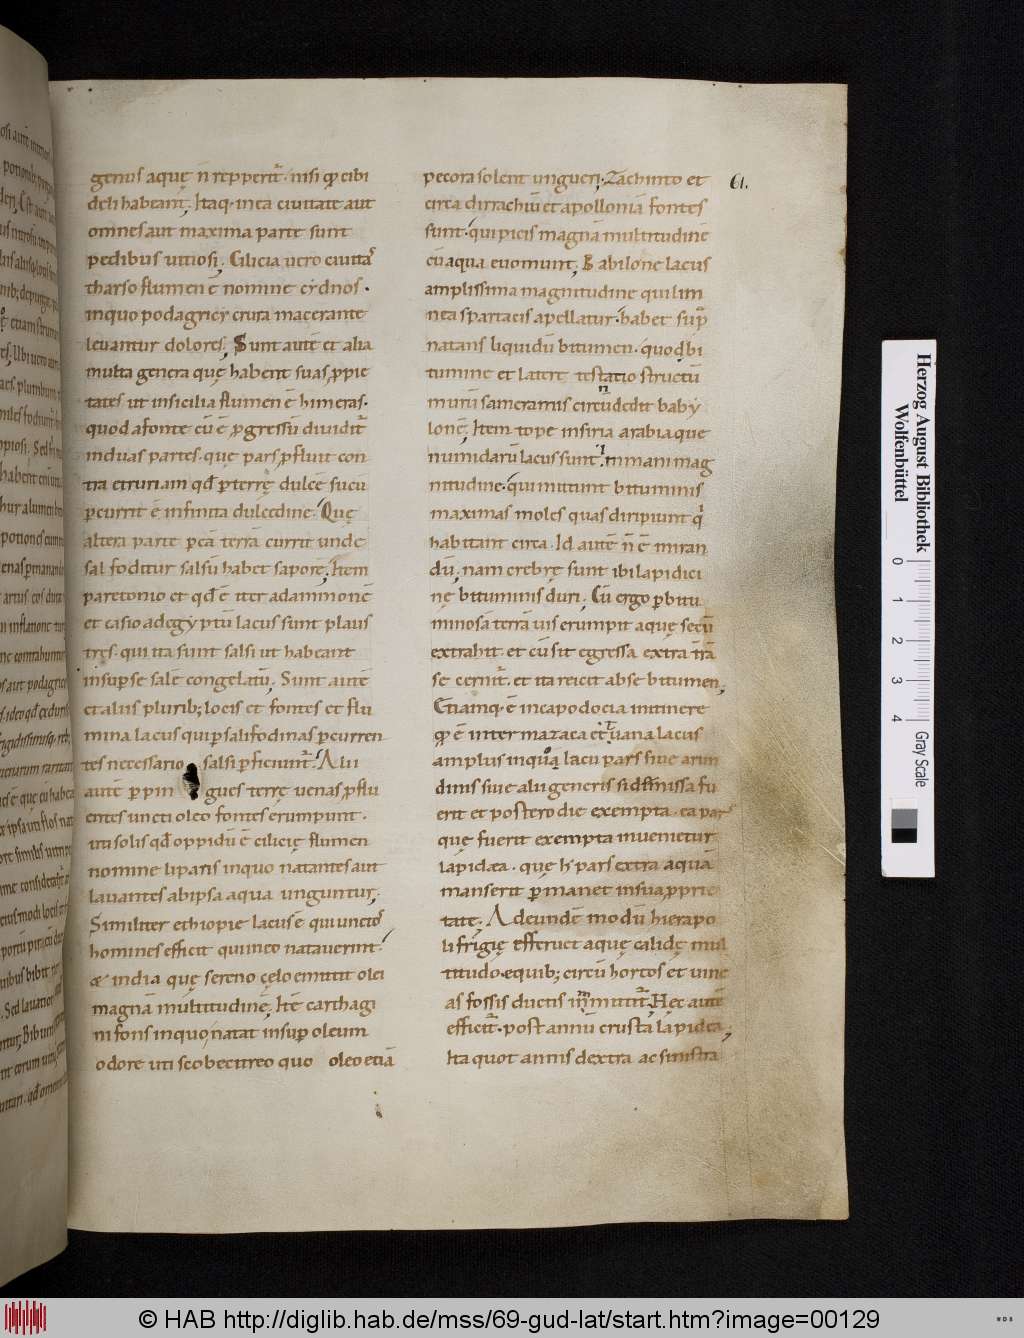 genus aquę n̄ reppperit᷑ · nisi qp̄ cibi
deli habeant; Itaq · in ea ciuitate aut
omnes aut maxima parte sunt
pedibus uitiosi; Cilicia uero ciuita
tharso flumen ē nomine cydnos ·
in quo podagrici crura macerante
leuantur dolores; Sunt autē et alia
multa genera quę habent suas ꝓprie
tates ut in sicilia flumen ē himeras ·
quod a fonte cū ē ꝓgressū diuidit᷑
in duas partes · quę pars ꝓfluit con
tra etruriam qđ ꝑ terrę dulcē sucū
ꝑcurrit ē infinita dulcedine · Quę
altera parte ꝑ eā terrā currit unde
sal foditur salsū habet saporē; Item
paretonio et qđ ē iter ad ammonē
et casio ad egyptū lacus sunt plaus
tres · qui ita sunt salsi ut habeant
insuꝑ se salē congelatū; Sunt autē
et aliis plurib; locis et fontes et flu
mina lacus qui ꝑ salifodinas ꝑcurren
tes necessario salsi ꝑficiunt᷑ · Alii
autē ꝑ pingues terrę uenas ꝓflu
entes uncti oleo fontes erumpunt ·
uti solis qđ oppidū ē cilicię flumen
nomine liparis in quo natantes aut
lauantes ab ipsa aqua unguntur;
Similiter ethiopie lacus ē qui unctos
homines efficit qui in eo natauerint
& india quę sereno cęlo emittit olei
magnā multitudinē; Itē carthagi
ni fons in quo natat insuꝑ oleum
odore uti scobe citreo quo oleo etiā
pecora solent ungueri; Zachinto et
circa dirrachiū et apolloniā fontes
sunt · qui picis magnā multitudine
cū aqua euomunt; Babilone lacus
amplissima magnitudine qui lim
nea spartacis apellatur · habet suꝑ
natans liquidū bitumen · quod bi
tumine et latere testatio structū
murū sameramis circūdedit baby
lonę; Item tope in siria arabia que
numidarū lacus sunt inmani mag
nitudine · qui mittunt bituminis
maximas moles quas diripiunt q
habitant circa · Id autē n̄ ē miran
dū; nam crebrę sunt ibi lapidici
nę bituminis duri; Cū ergo ꝑ bitu
minosā terrā uis erumpit aquę secū
extrahit · et cū sit egressa extra trā
se cernit᷑ · et ita reicit ab se bitumen;
Etiamq · ē in capodocia in itinere
qp̄ ē inter mazaca et tuana lacus
amplus in quo lacu pars siue arun
dinis siue alii generis si dimissa fu
erit et postero die exempta · ea pars
quę fuerit exempta inuenietur
lapidea · quę h pars extra aquā
manserit ꝑmanet in sua ꝓprie
tate; Ad eundē modū hierapo
li frigię efferuet aquę calidę mul
titudo · e quib; circū hortos et uine
as fossis ductis inmittit᷑; Hęc autē
efficit᷑ · post annū crusta lapidea;
Ita quot annis dextra ac sinistra
61.
Herzog August Bibliothek
Wolfenbüttel
0 1 2 3 4
Gray Scale
© HAB http://diglib.hab.de/mss/69-gud-lat/start.htm?image=00129